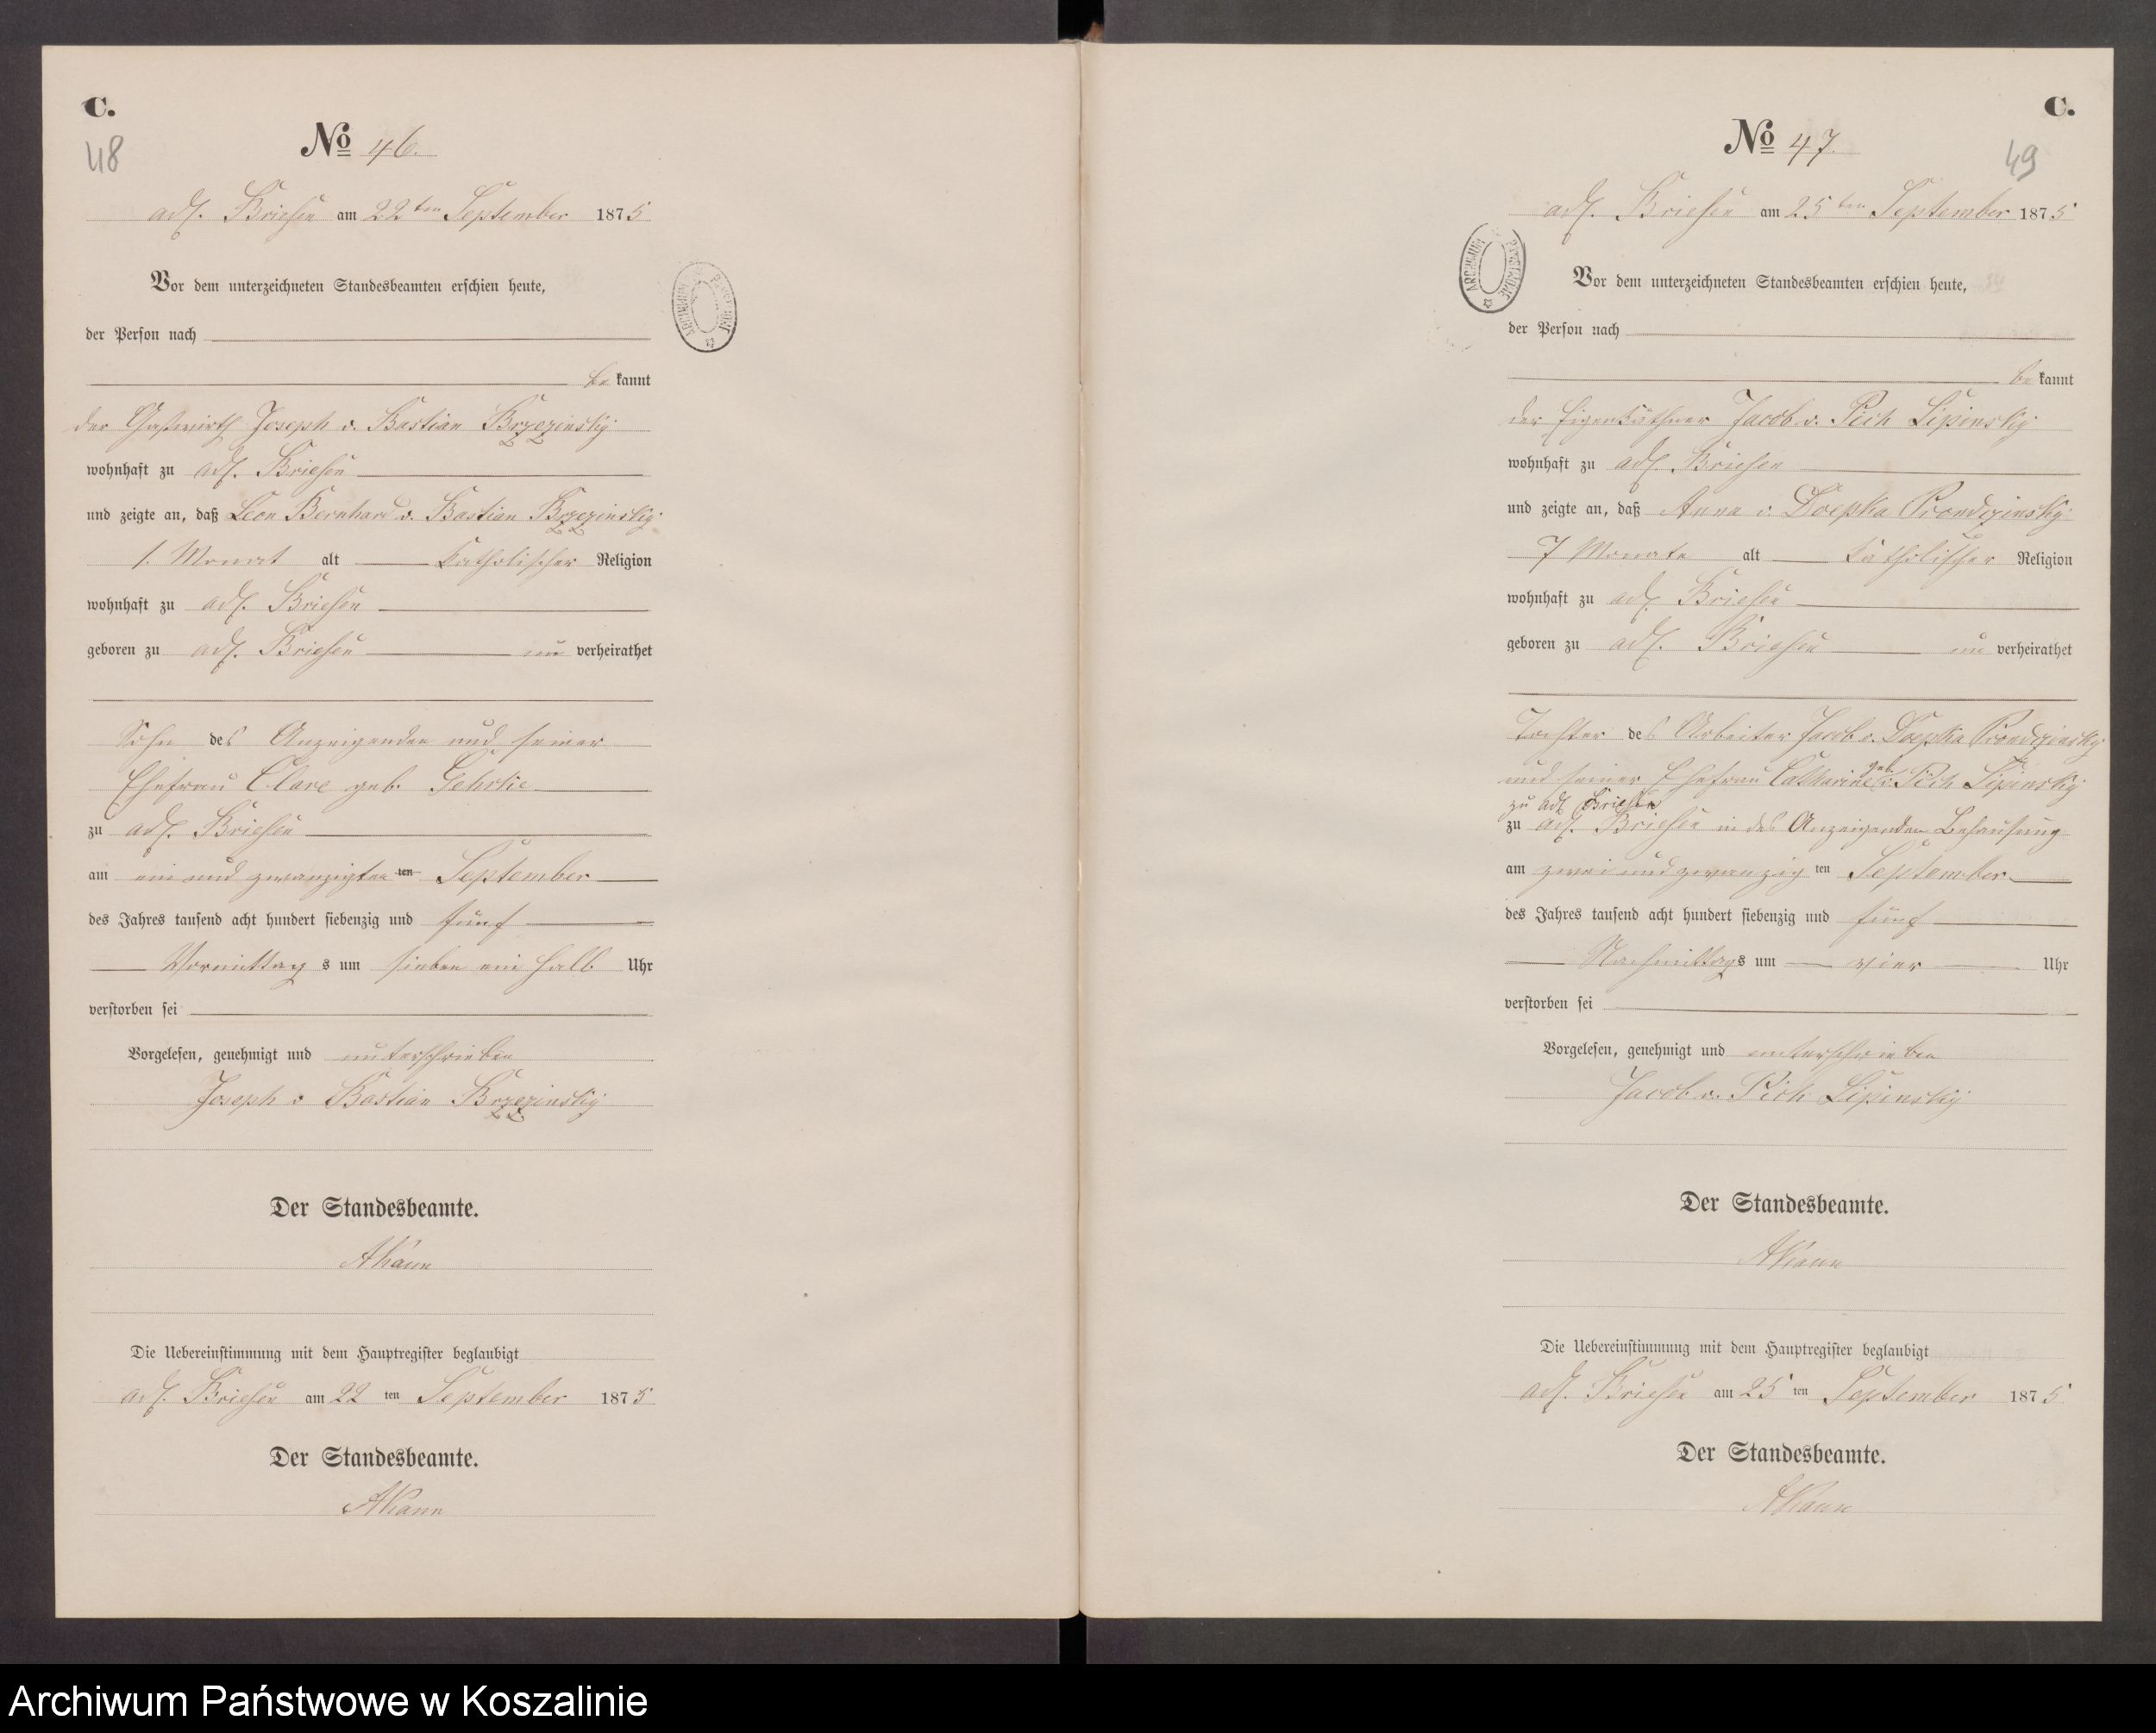 C.
48
No 46.
adl. Briesen am 22ten September 1875
Vor dem unterzeichneten Standesbeamten erschien heute,
der Person nach
bekannt
der Gastwirth Joseph v. Bastian Brzezinsky
wohnhaft zu adl. Briesen
und zeigte an, daß Leon Bernhard v. Bastian Brzezinsky
1. Monat alt katholischer Religion
wohnhaft zu adl. Briesen
geboren zu adl. Briesen unverheirathet
Sohn des Anzeigenden und seiner
Ehefrau Clare geb. Gehrke
zu adl. Briesen
am ein und zwanzigten ten September
des Jahres tausend acht hundert siebenzig und fünf
Vormittags um sieben ein halb Uhr
verstorben sei
Vorgelesen, genehmigt und unterschrieben
Joseph v Bastian Brzezinsky
Der Standesbeamte.
Die Uebereinstimmung mit dem Hauptregister beglaubigt
adl. Briesen am 22 ten September 1875
Der Standesbeamte.
C.
49
No 47.
adl. Briesen am 25ten September 1875
ARCHIWUM PAŃSTWOWE
Vor dem unterzeichneten Standesbeamten erschien heute,
der Person nach
bekannt
der Eigenkäthner Jacob v. Pich Lipinsky
wohnhaft zu adl. Briesen
und zeigte an, daß Anna v. Doepka Prondzinsky
7 Monate alt katholischer Religion
wohnhaft zu adl. Briesen
geboren zu adl. Briesen unverheirathet
Tochter des Arbeiter Jacob v. Doepka Prondzinsky
und seiner Ehefrau Catharine geb. v. Pich Lipinsky
zu adl Briesen
zu adl. Briesen in des Anzeigenden Behausung
am zwei und zwanzig ten September
des Jahres tausend acht hundert siebenzig und fünf
Nachmittags um vier Uhr
verstorben sei
Vorgelesen, genehmigt und unterschrieben
Jacob v. Pich Lipinsky
Der Standesbeamte.
Die Uebereinstimmung mit dem Hauptregister beglaubigt
adl. Briesen am 25 ten September 1875
Der Standesbeamte.
Archiwum Państwowe w Koszalinie